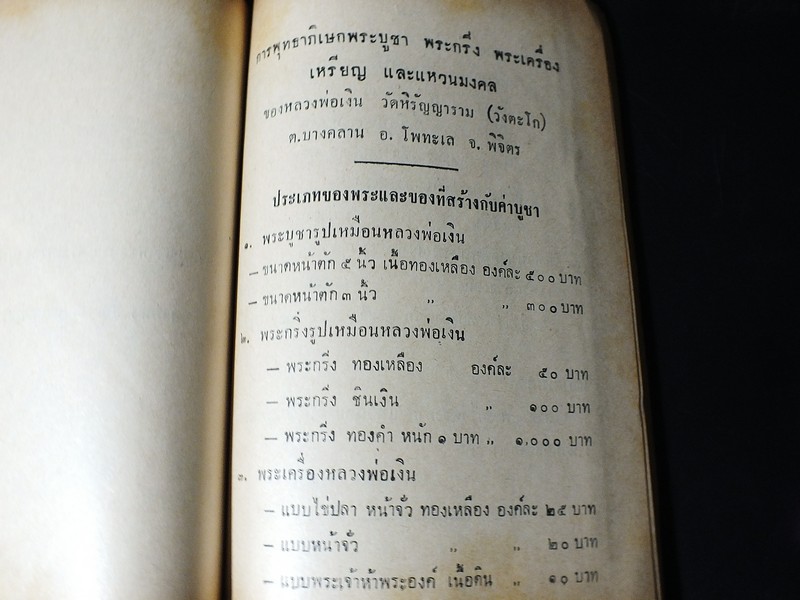 การพุทธาภิเษกพระบูชา พระกริ่ง พระเครื่อง
เหรียญ และแหวนมงคล
ของหลวงพ่อเงิน วัดหิรัญญาราม (วังตะโก)
ต.บางคลาน อ. โพทะเล จ. พิจิตร
ประเภทของพระและของที่สร้างกับค่าบูชา
๑. พระบูชารูปเหมือนหลวงพ่อเงิน
– ขนาดหน้าตัก ๕ นิ้ว เนื้อทองเหลือง องค์ละ ๕๐๐ บาท
– ขนาดหน้าตัก ๓ นิ้ว ,, ,, ๓๐๐ บาท
๒. พระกริ่งรูปเหมือนหลวงพ่อเงิน
– พระกริ่ง ทองเหลือง องค์ละ ๕๐ บาท
– พระกริ่ง ชินเงิน ,, ๑๐๐ บาท
– พระกริ่ง ทองคำ หนัก ๑ บาท ,, ๑,๐๐๐ บาท
๓. พระเครื่องหลวงพ่อเงิน
– แบบไข่ปลา หน้าจั่ว ทองเหลือง องค์ละ ๒๕ บาท
– แบบหน้าจั่ว ,, ,, ๒๐ บาท
– แบบพระเจ้าห้าพระองค์ เนื้อดิน ,, ๑๐ บาท